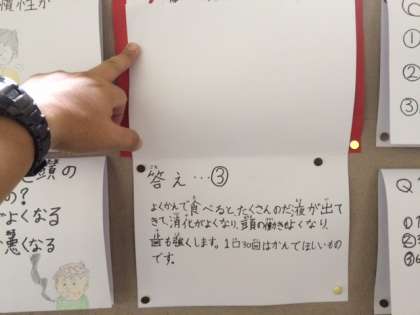 慣性か
答え…③
よくかんで食べると、たくさんのだ液が出て
きて、消化がよくなり、頭の働きがよくなり、
歯も強くします。1口30回はかんでほしいもの
です。
の?
がよくなる
悪くなる
①
②
③
Q
①
②
③